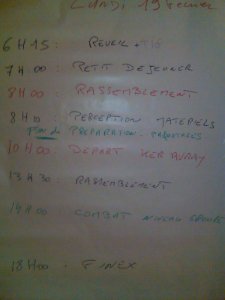 LUNDI 19
6H15: REVEIL +
7H00: PETIT DEJEUNER
8H00: RASSEMBLEMENT
8H10: PERCEPTION MATERIELS
PREPARATION
10H00: DEPART
13H30: RASSEMBLEMENT
COMBAT
18H00 - FINEX